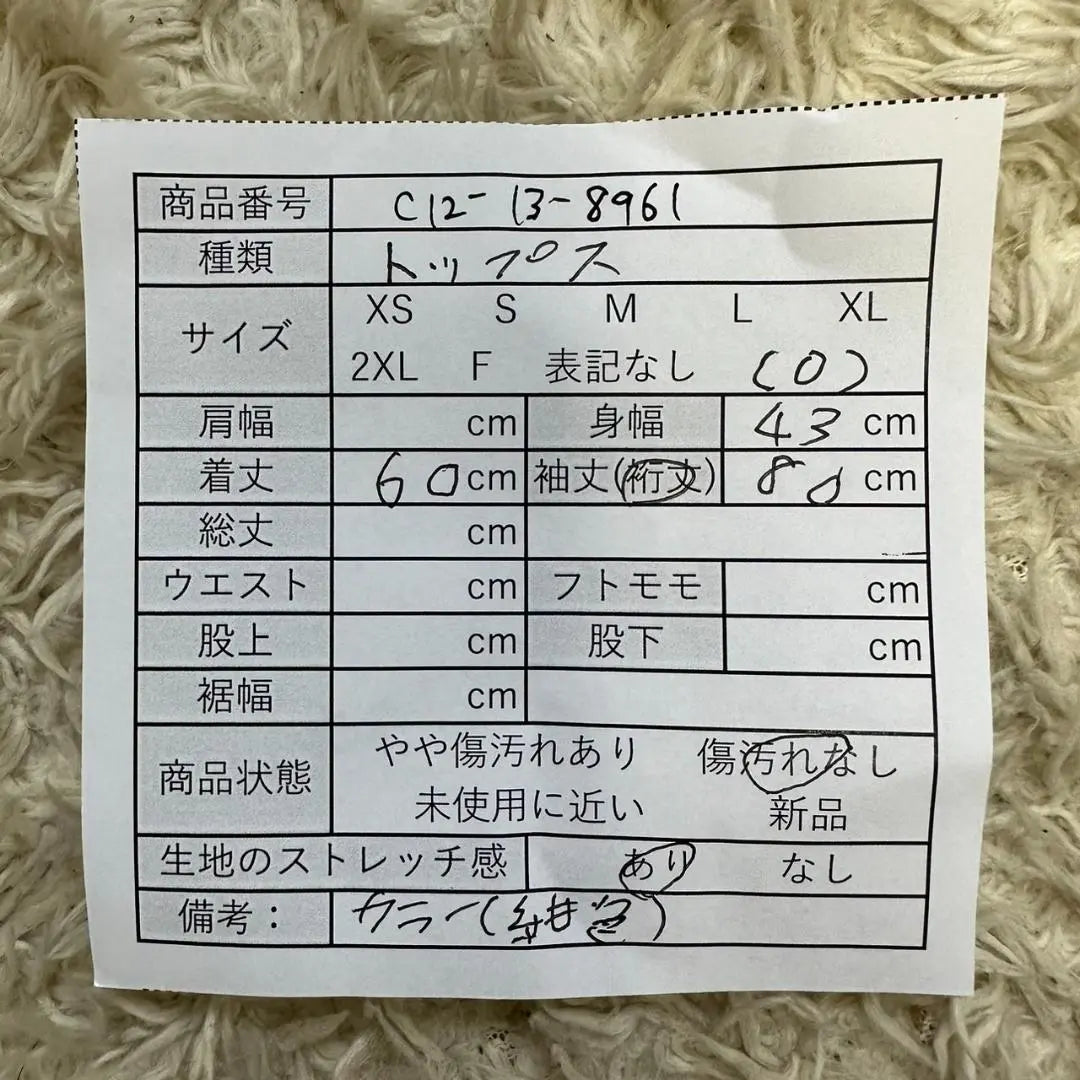 商品番号 C12-13-8961
種類 トップス
サイズ XS S M L XL
2XL F 表記なし (0)
肩幅 cm 身幅 43 cm
着丈 60 cm 袖丈(裄丈) 80 cm
総丈 cm
ウエスト cm フトモモ cm
股上 cm 股下 cm
裾幅 cm
商品状態 やや傷汚れあり 傷汚れなし
未使用に近い 新品
生地のストレッチ感 あり なし
備考： カラー(紺色)